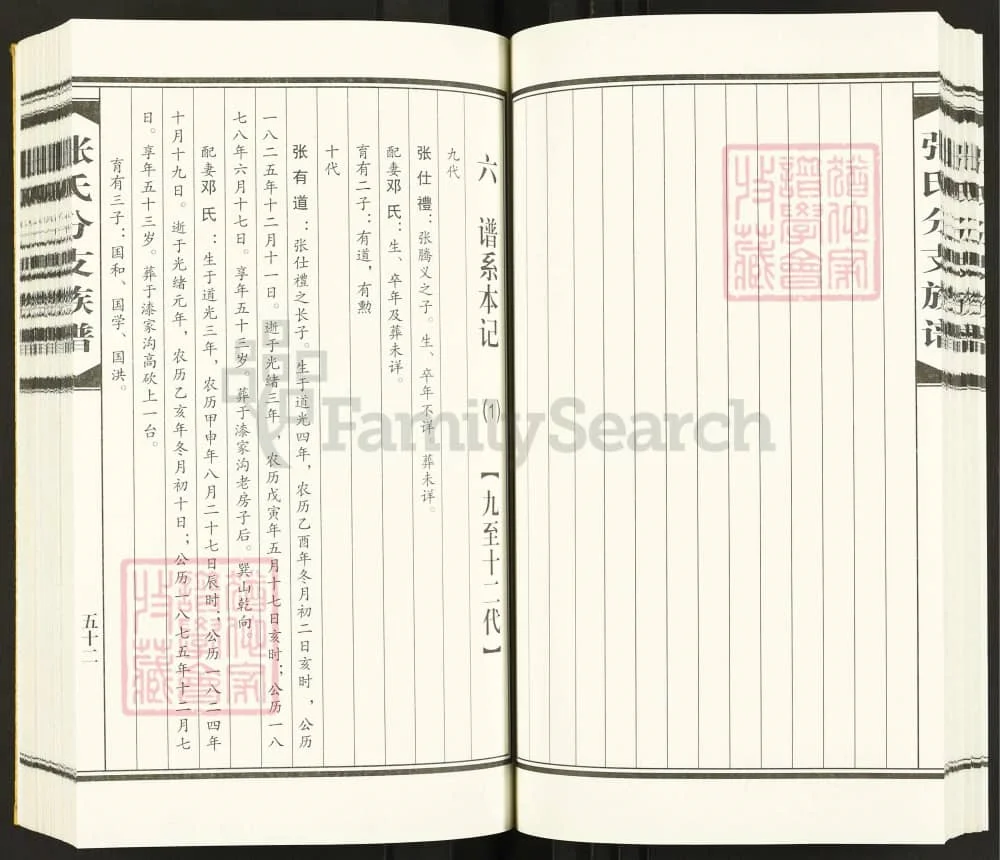 张氏分支族谱
六 谱系本记 (1) 【九至十二代】
九代
张仕禮：张腾义之子。生、卒年不详，葬未详。
配妻邓氏：生、卒年及葬未详。
育有二子：有道，有勲
十代
张有道：张仕禮之长子。生于道光四年，农历乙酉年冬月初二日亥时，公历
一八二五年十二月十一日。逝于光绪三年，农历戊寅年五月十七日亥时；公历一八
七八年六月十七日。享年五十三岁。葬于漆家沟老房子后。巽山乾向。
配妻邓氏：生于道光三年，农历甲申年八月二十七日辰时；公历一八二四年
十月十九日。逝于光绪元年，农历乙亥年冬月初十日；公历一八七五年十二月七
日。享年五十三岁。葬于漆家沟高砍上一台。
育有三子：国和、国学、国洪。
张氏分支族谱
五十二
FamilySearch